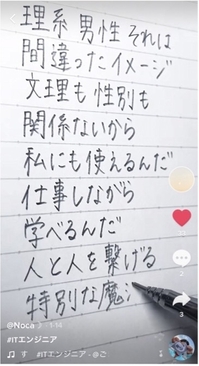 理系 男性 それは
間違ったイメージ
文理も性別も
関係ないから
私にも使えるんだ
仕事しながら
学べるんだ
人と人を繋げる
特別な魔
@Noca♪ · 1-14
#ITエンジニア
♫ す #ITエンジニア - @ご